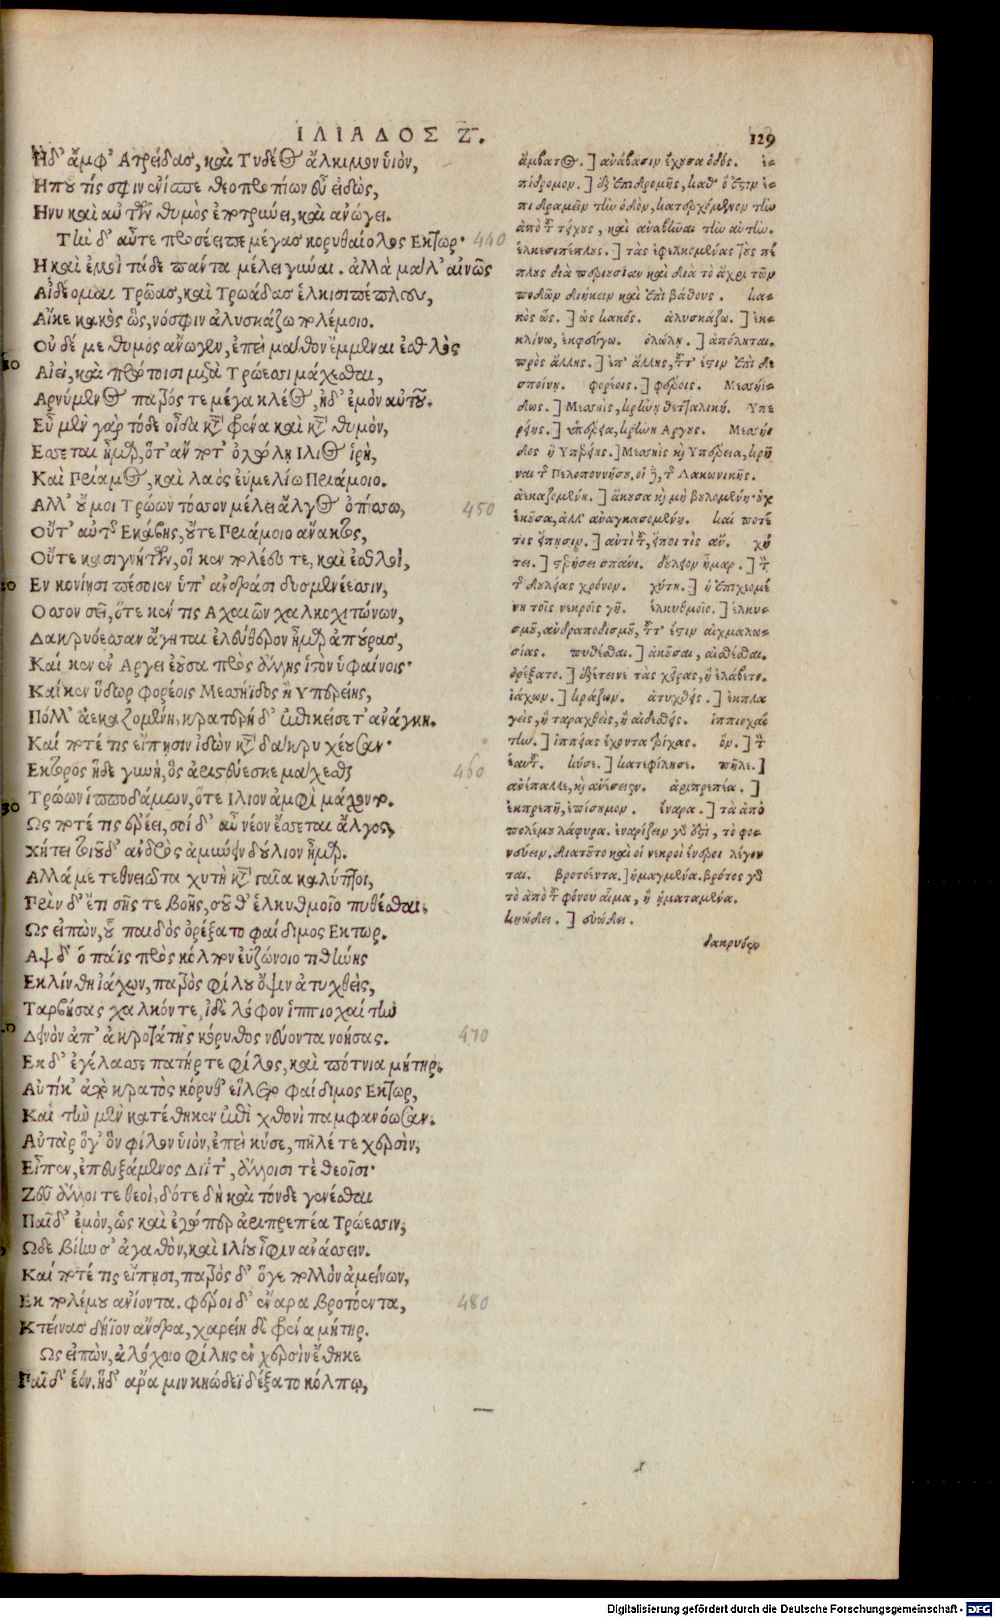 ΙΛΙΑΔΟΣ Ζ.
129
Ηδ' ἀμφ' Ατρείδας, καὶ Τυδέος ἄλκιμον ὑιὸν,
Η που τίς σφιν ἔνισπε θεοπροπίων εὖ εἰδὼς,
Η νυ καὶ αὐτῶν θυμὸς ἐποτρύνει, καὶ ἀνώγει.
Τὴν δ' αὖτε προσέειπε μέγας κορυθαίολος Εκτωρ·
440
Η καὶ ἐμοὶ τάδε πάντα μέλει γύναι. ἀλλὰ μάλ' αἰνῶς
Αἰδέομαι Τρῶας, καὶ Τρωάδας ἑλκεσιπέπλους,
Αἴκε κακὸς ὣς, νόσφιν ἀλυσκάζω πολέμοιο.
Οὐδέ με θυμὸς ἄνωγεν, ἐπεὶ μάθον ἔμμεναι ἐσθλὸς
Αἰεὶ, καὶ πρώτοισι μετὰ Τρώεσσι μάχεσθαι,
Αρνύμενος πατρός τε μέγα κλέος, ἠδ' ἐμὸν αὐτοῦ.
Εὖ μὲν γὰρ τόδε οἶδα κατὰ φρένα καὶ κατὰ θυμὸν,
Εσσεται ἦμαρ, ὅτ' ἄν ποτ' ὀλώλῃ Ιλιος ἱρὴ,
Καὶ Πρίαμος, καὶ λαὸς ἐϋμμελίω Πριάμοιο.
Αλλ' οὔ μοι Τρώων τόσσον μέλει ἄλγος ὀπίσσω,
450
Οὔτ' αὐτῆς Εκάβης, οὔτε Πριάμοιο ἄνακτος,
Οὔτε κασιγνήτων, οἵ κεν πολέες τε, καὶ ἐσθλοὶ,
Εν κονίῃσι πέσοιεν ὑπ' ἀνδράσι δυσμενέεσσιν,
Οσσον σεῖ, ὅτε κέν τις Αχαιῶν χαλκοχιτώνων,
Δακρυόεσσαν ἄγηται ἐλεύθερον ἦμαρ ἀπούρας,
Καί κεν ἐν Αργει ἐοῦσα πρὸς ἄλλης ἱστὸν ὑφαίνοις·
Καί κεν ὕδωρ φορέοις Μεσσηΐδος ἢ Υπερείης,
Πόλλ' ἀεκαζομένη, κρατερὴ δ' ἐπικείσετ' ἀνάγκη.
Καί ποτέ τις εἴπῃσιν ἰδὼν κατὰ δάκρυ χέουσαν·
Εκτορος ἥδε γυνὴ, ὃς ἀριστεύεσκε μάχεσθαι
460
Τρώων ἱπποδάμων, ὅτε Ιλιον ἀμφὶ μάχοντο.
Ως ποτέ τις ἐρέει, σοὶ δ' αὖ νέον ἔσσεται ἄλγος,
Χήτει τοιοῦδ' ἀνδρὸς ἀμύνειν δούλιον ἦμαρ.
Αλλά με τεθνειῶτα χυτὴ κατὰ γαῖα καλύπτοι,
Πρίν δ' ἔτι σῆς τε βοῆς, σοῦ θ' ἑλκυθμοῖο πυθέσθαι.
Ως εἰπὼν, οὗ παιδὸς ὀρέξατο φαίδιμος Εκτωρ.
Αψ δ' ὁ πάϊς πρὸς κόλπον ἐϋζώνοιο τιθήνης
Εκλίνθη ἰάχων, πατρὸς φίλου ὄψιν ἀτυχθεὶς,
Ταρβήσας χαλκόν τε, ἰδὲ λόφον ἱππιοχαίτην
Δεινὸν ἀπ' ἀκροτάτης κόρυθος νεύοντα νοήσας.
470
Εκ δ' ἐγέλασσε πατήρ τε φίλος, καὶ πότνια μήτηρ.
Αὐτίκ' ἀπὸ κρατὸς κόρυθ' εἵλετο φαίδιμος Εκτωρ,
Καὶ τὴν μὲν κατέθηκεν ἐπὶ χθονὶ παμφανόωσαν.
Αὐτὰρ ὅγ' ὃν φίλον ὑιὸν, ἐπεὶ κύσε, πῆλέ τε χερσὶν,
Εἶπεν, ἐπευξάμενος Διΐ τ', ἄλλοισί τε θεοῖσι·
Ζεῦ ἄλλοι τε θεοὶ, δότε δὴ καὶ τόνδε γενέσθαι
Παῖδ' ἐμὸν, ὡς καὶ ἐγώ περ ἀριπρεπέα Τρώεσσιν,
Ωδε βίην τ' ἀγαθὸν, καὶ Ιλίου ἶφιν ἀνάσσειν.
Καί ποτέ τις εἴπῃσι, πατρὸς δ' ὅγε πολλὸν ἀμείνων,
Εκ πολέμου ἀνίοντα. φέροι δ' ἔναρα βροτόεντα,
480
Κτείνας δήϊον ἄνδρα, χαρείη δὲ φρένα μήτηρ.
Ως εἰπὼν, ἀλόχοιο φίλης ἐν χερσὶν ἔθηκε
Παῖδ' ἑόν. ἡ δ' ἄρα μιν κηώδεϊ δέξατο κόλπῳ,
ἄμβατος.] ἀνάβασιν ἔχουσα ὁδός. ἐ-
πίδρομον.] ἐξ ἐπιδρομῆς, καθ' ὅ ἐστιν ἐ-
πιδραμεῖν τὴν ὁδὸν, κατερχόμενον τὴν
ἀπὸ τοῦ τείχους, καὶ ἀναβῆναι τὴν αὐτήν.
ἑλκεσιπέπλους.] τὰς ἐφελκομένας τοὺς πέ
πλους διὰ περιουσίαν καὶ διὰ τὸ ἄχρι τῶν
ποδῶν διήκειν καὶ ἐπὶ βάθους. κα-
κὸς ὥς.] ὡς κακός. ἀλυσκάζω.] ἐκ-
κλίνω, ἐκφεύγω. ὀλώλῃ.] ἀπόληται.
πρὸς ἄλλης.] ἐπ' ἄλλης, τοῦτ' ἔστιν ἐπὶ δε
σποίνῃ. φορέοις.] φέροις. Μεσσηΐ-
δος.] Μεσσηῒς, κρήνη θετταλική. Υπε
ρείης.] ὑπέρεια, κρήνη Αργους. Μεσσηΐ-
δος ἢ Υπερείης.] Μεσσηῒς καὶ Υπέρεια, κρῆ
ναι τῆς Πελοποννήσου, οἱ δὲ, τῆς Λακωνικῆς.
ἀεκαζομένη.] ἄκουσα καὶ μὴ βουλομένη· οὐχ
ἑκοῦσα, ἀλλ' ἀναγκαζομένη. καί ποτέ
τις εἴπῃσιν.] ἀντὶ τοῦ, εἴποι τὶς ἄν. χή
τει.] στερήσει σπάνει. δούλιον ἦμαρ.] τὸν
τῆς δουλείας χρόνον. χύτη.] ἡ ἐπιχεομέ
νη τοῖς νεκροῖς γῆ. ἑλκυθμοῖο.] ἑλκυσ-
μοῦ, ἀνδραποδισμοῦ, τοῦτ' ἔστιν αἰχμαλω-
σίας. πυθέσθαι.] ἀκοῦσαι, αἰσθέσθαι.
ὀρέξατο.] ἐξέτεινε τὰς χεῖρας, ἢ ἐλάβετο.
ἰάχων.] κράζων. ἀτυχθείς.] ἐκπλα
γεὶς, ἢ ταραχθεὶς, ἢ αἰδεσθείς. ἱππιοχαί
την.] ἱππείας ἔχοντα τρίχας. ὅν.] τὸν
ἑαυτοῦ. κύσε.] κατεφίλησε. πῆλε.]
ἀνέπαλλε, καὶ ἀνέσεισεν. ἀριπρεπέα.]
ἐκπρεπῆ, ἐπίσημον. ἔναρα.] τὰ ἀπὸ
πολέμου λάφυρα. ἐναρίζειν γάρ ἐστι, τὸ φο-
νεύειν. διατοῦτο καὶ οἱ νεκροὶ ἔνεροι λέγον
ται. βροτόεντα.] ᾑμαγμένα. βρότος γὰρ
τὸ ἀπὸ τοῦ φόνου αἷμα, ἢ ᾑματωμένα.
κηώδει.] εὐώδει.
δακρυόεν
Digitalisierung gefördert durch die Deutsche Forschungsgemeinschaft - DFG